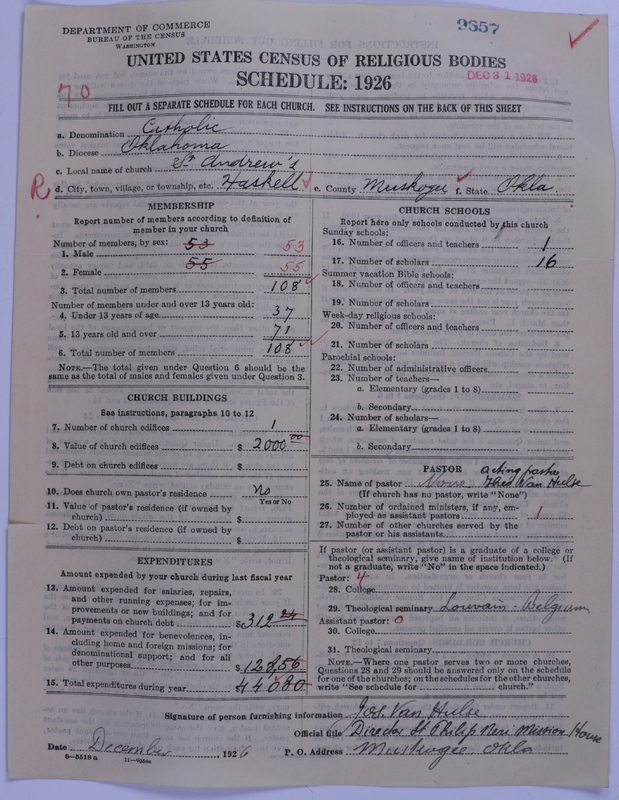 DEPARTMENT OF COMMERCE
BUREAU OF THE CENSUS
WASHINGTON
9857
UNITED STATES CENSUS OF RELIGIOUS BODIES
SCHEDULE: 1926
DEC 31 1926
70
FILL OUT A SEPARATE SCHEDULE FOR EACH CHURCH. SEE INSTRUCTIONS ON THE BACK OF THIS SHEET
a. Denomination Catholic
b. Diocese Oklahoma
c. Local name of church St Andrew's
R d. City, town, village, or township, etc. Haskell e. County Muskogee f. State Okla.
MEMBERSHIP
Report number of members according to definition of
member in your church
Number of members, by sex: 53
1. Male 53
2. Female 55 55
3. Total number of members 108
Number of members under and over 13 years old:
4. Under 13 years of age 37
5. 13 years old and over 71
6. Total number of members 108
NOTE.—The total given under Question 6 should be the
same as the total of males and females given under Question 3.
CHURCH BUILDINGS
See instructions, paragraphs 10 to 12
7. Number of church edifices 1
8. Value of church edifices $ 2000 00
9. Debt on church edifices $
10. Does church own pastor's residence No
Yes or No
11. Value of pastor's residence (if owned by
church) $
12. Debt on pastor's residence (if owned by
church) $
EXPENDITURES
Amount expended by your church during last fiscal year
13. Amount expended for salaries, repairs,
and other running expenses; for im-
provements or new buildings; and for
payments on church debt $ 312 24
14. Amount expended for benevolences, in-
cluding home and foreign missions; for
denominational support; and for all
other purposes $ 128,56
15. Total expenditures during year $ 44080
CHURCH SCHOOLS
Report here only schools conducted by this church
Sunday schools:
16. Number of officers and teachers 1
17. Number of scholars 16
Summer vacation Bible schools:
18. Number of officers and teachers
19. Number of scholars
Week-day religious schools:
20. Number of officers and teachers
21. Number of scholars
Parochial schools:
22. Number of administrative officers
23. Number of teachers—
a. Elementary (grades 1 to 8)
b. Secondary
24. Number of scholars—
a. Elementary (grades 1 to 8)
b. Secondary
PASTOR acting pastor
25. Name of pastor None Van Hulse
(If church has no pastor, write "None")
26. Number of ordained ministers, if any, em-
ployed as assistant pastors 1
27. Number of other churches served by the
pastor or his assistants
If pastor (or assistant pastor) is a graduate of a college or
theological seminary, give name of institution below. (If
not a graduate, write "No" in the space indicated.)
Pastor: 4
28. College
29. Theological seminary Louvain - Belgium
Assistant pastor: 0
30. College
31. Theological seminary
NOTE.—Where one pastor serves two or more churches,
Questions 28 and 29 should be answered only on the schedule
for one of the churches; on the schedules for the other churches,
write "See schedule for church."
Signature of person furnishing information Jos. Van Hulse
Official title Director St Philip Neri Mission House
Date December, 1926 P. O. Address Muskogee, Okla
8-5518a 11-9054a